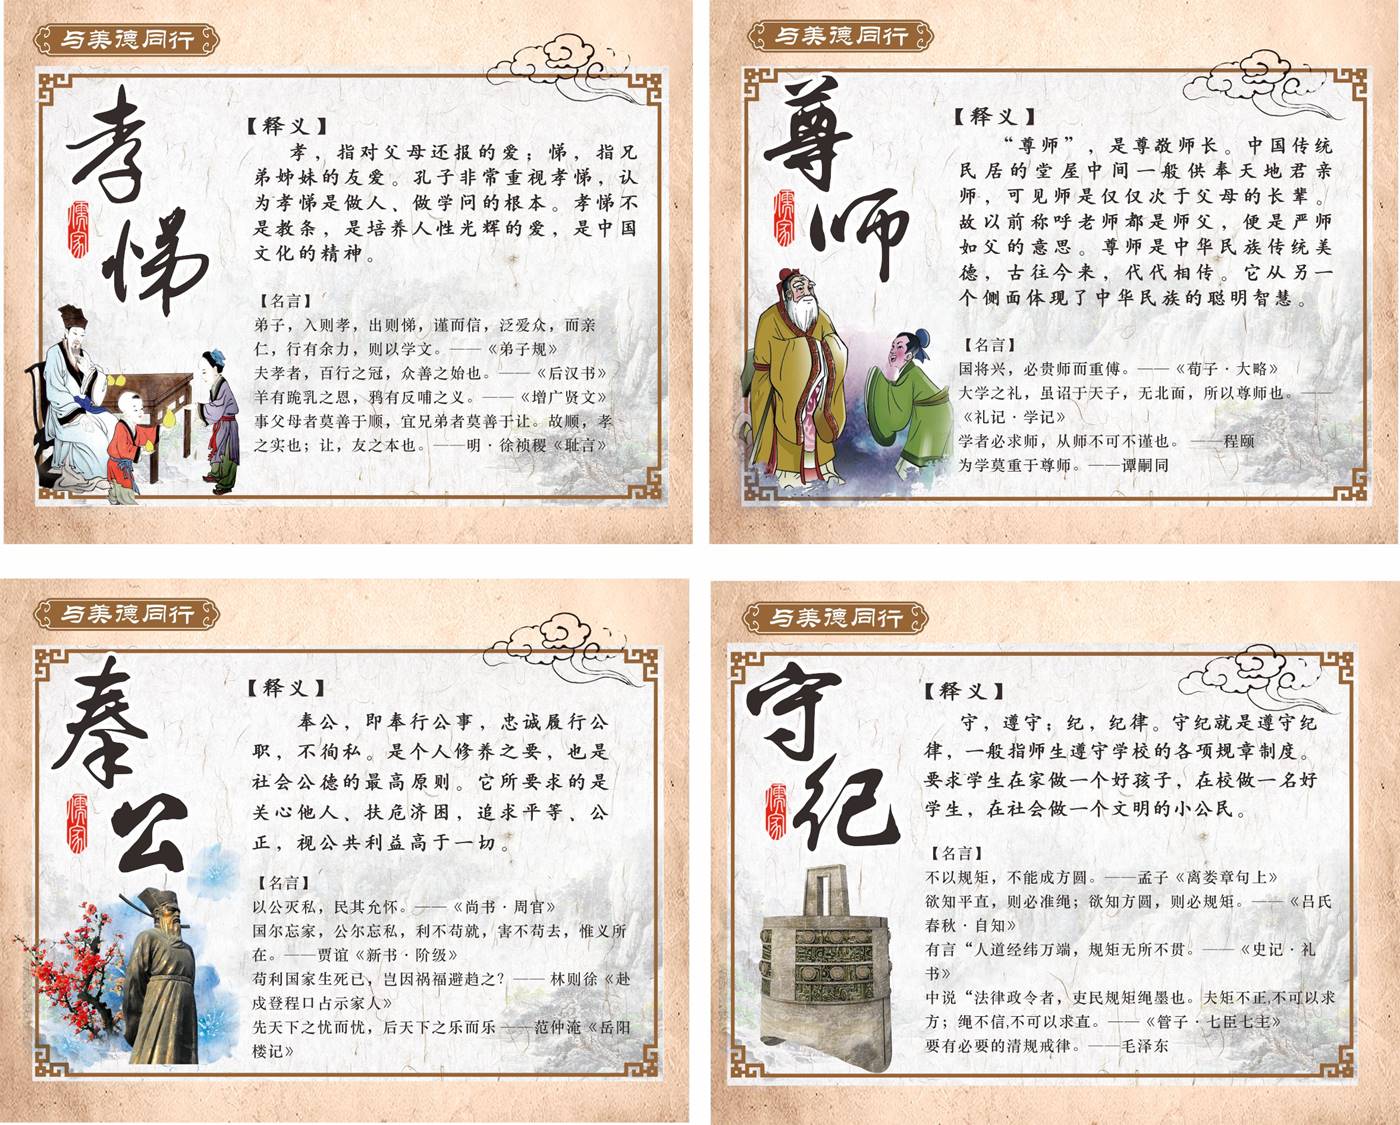 与美德同行
孝悌
儒家
【释义】
孝，指对父母还报的爱；悌，指兄
弟姊妹的友爱。孔子非常重视孝悌，认
为孝悌是做人、做学问的根本。孝悌不
是教条，是培养人性光辉的爱，是中国
文化的精神。
【名言】
弟子，入则孝，出则悌，谨而信，泛爱众，而亲
仁，行有余力，则以学文。——《弟子规》
夫孝者，百行之冠，众善之始也。——《后汉书》
羊有跪乳之恩，鸦有反哺之义。——《增广贤文》
事父母者莫善于顺，宜兄弟者莫善于让。故顺，孝
之实也；让，友之本也。——明·徐祯稷《耻言》
与美德同行
尊师
儒家
【释义】
“尊师”，是尊敬师长。中国传统
民居的堂屋中间一般供奉天地君亲
师，可见师是仅仅次于父母的长辈。
故以前称呼老师都是师父，便是严师
如父的意思。尊师是中华民族传统美
德，古往今来，代代相传。它从另一
个侧面体现了中华民族的聪明智慧。
【名言】
国将兴，必贵师而重傅。——《荀子·大略》
大学之礼，虽诏于天子，无北面，所以尊师也。——
《礼记·学记》
学者必求师，从师不可不谨也。 ——程颐
为学莫重于尊师。——谭嗣同
与美德同行
奉公
儒家
【释义】
奉公，即奉行公事，忠诚履行公
职，不徇私。是个人修养之要，也是
社会公德的最高原则。它所要求的是
关心他人、扶危济困，追求平等、公
正，视公共利益高于一切。
【名言】
以公灭私，民其允怀。——《尚书·周官》
国尔忘家，公尔忘私，利不苟就，害不苟去，惟义所
在。——贾谊《新书·阶级》
苟利国家生死已，岂因祸福避趋之？—— 林则徐《赴
戍登程口占示家人》
先天下之忧而忧，后天下之乐而乐——范仲淹《岳阳
楼记》
与美德同行
守纪
儒家
【释义】
守，遵守；纪，纪律。守纪就是遵守纪
律，一般指师生遵守学校的各项规章制度。
要求学生在家做一个好孩子，在校做一名好
学生，在社会做一个文明的小公民。
【名言】
不以规矩，不能成方圆。——孟子《离娄章句上》
欲知平直，则必准绳；欲知方圆，则必规矩。——《吕氏
春秋·自知》
有言“人道经纬万端，规矩无所不贯。——《史记·礼
书》
中说“法律政令者，吏民规矩绳墨也。夫矩不正,不可以求
方；绳不信,不可以求直。——《管子·七臣七主》
要有必要的清规戒律。——毛泽东